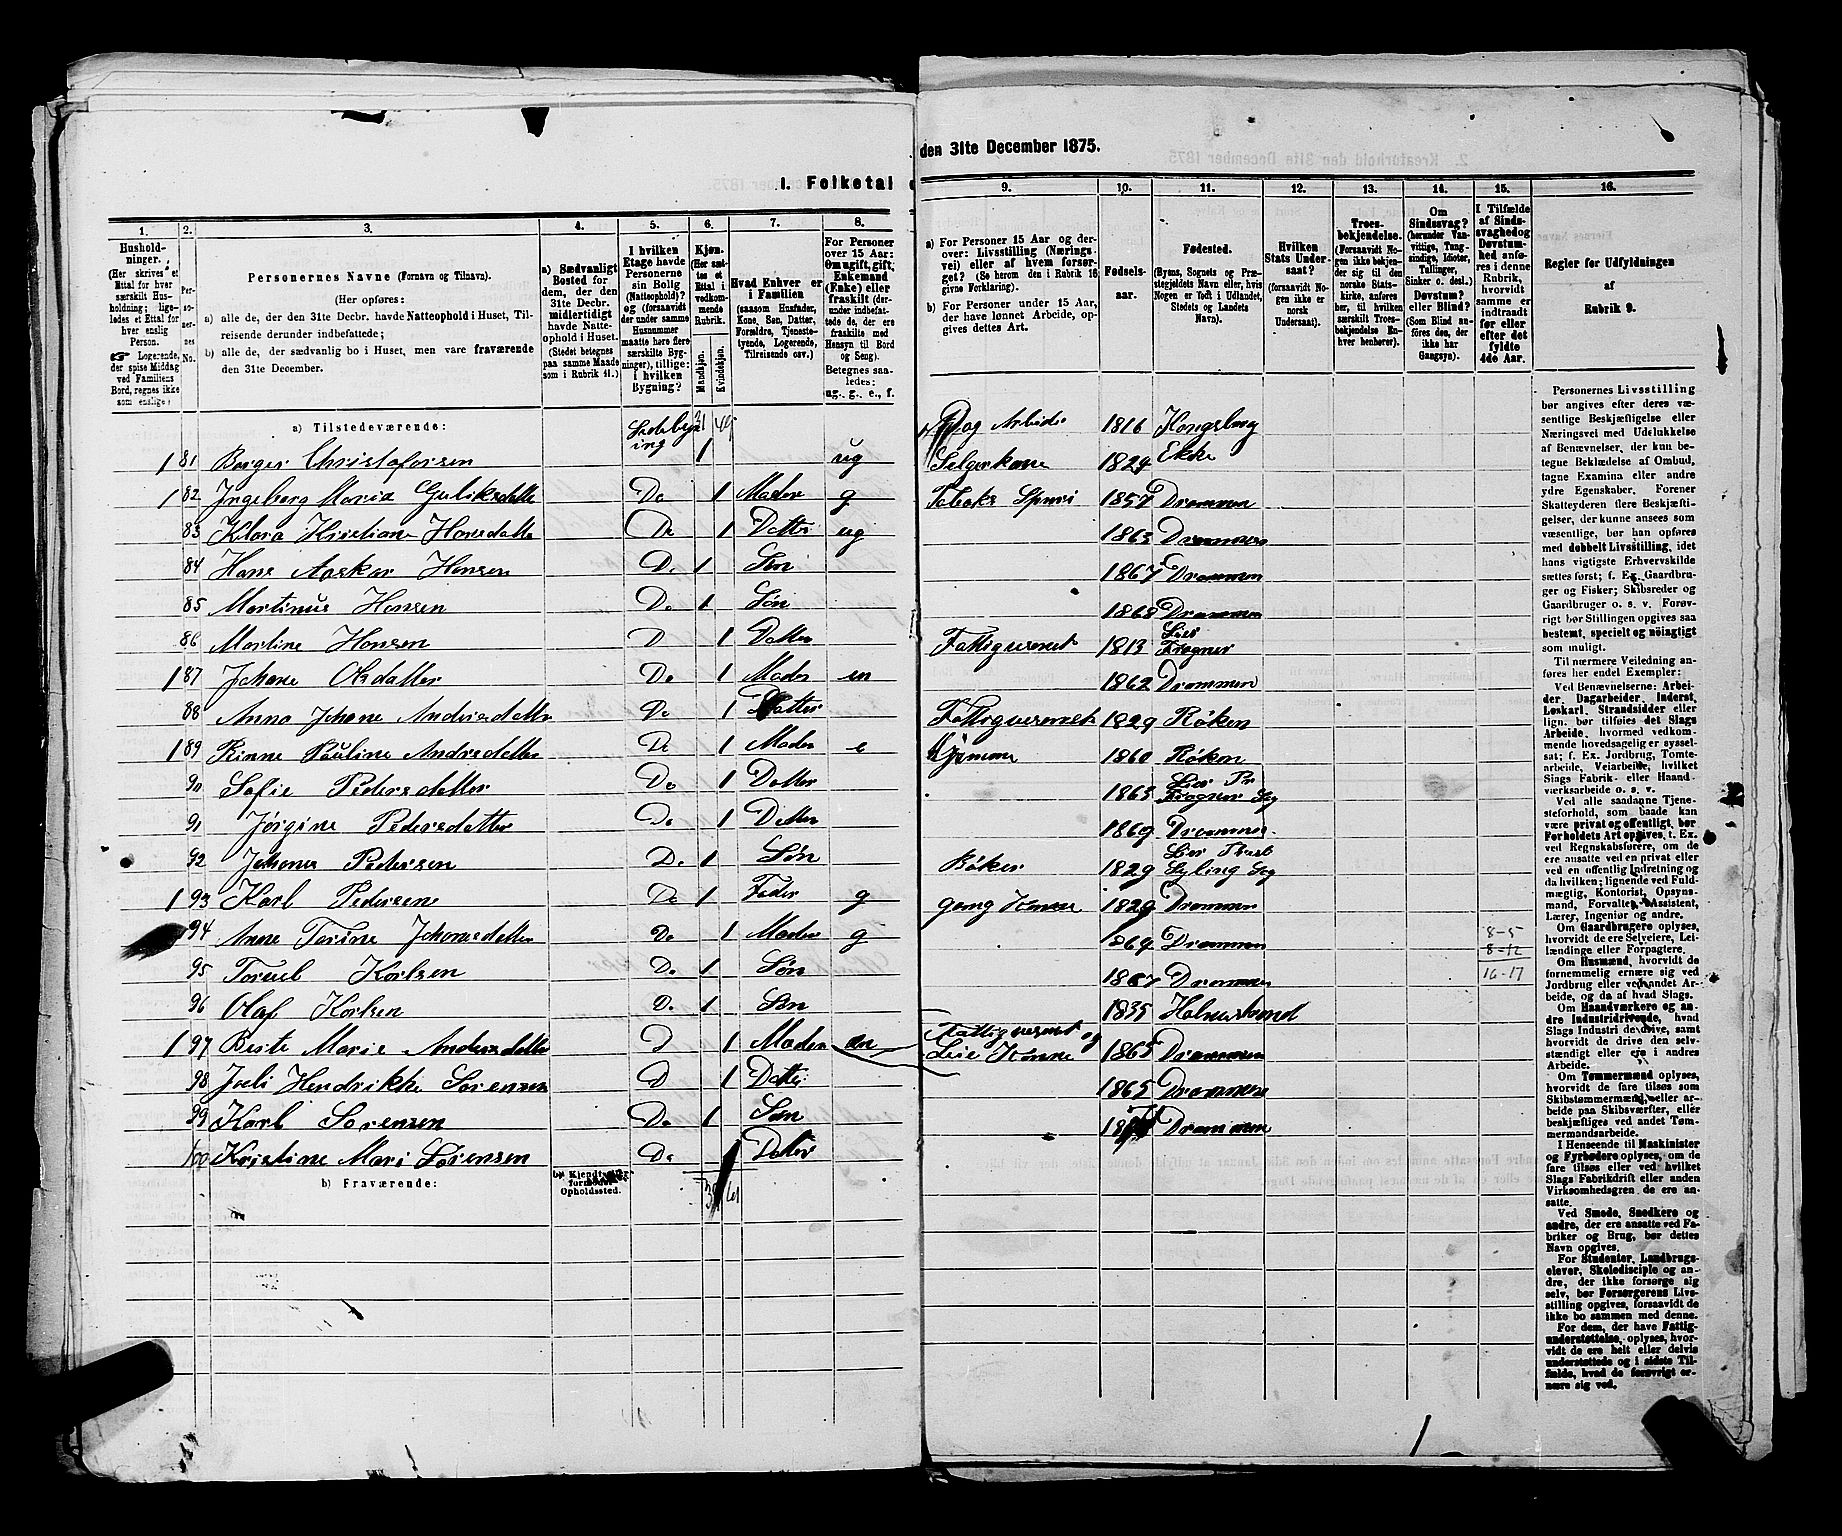 1. Folketal
den 31te December 1875.
1.
2.
3.
4.
5.
6.
7.
8.
9.
10.
11.
12.
13.
14.
15.
16.
Husholdninger.
(Her skrives et Ettal for hver særskilt Husholdning; ligeledes et Ettal for hver enslig Person.
Logerende, der spise Middag ved Familiens Bord, regnes ikke som enslige.)
Personernes No.
Personernes Navne (Fornavn og Tilnavn).
(Her opføres:
a) alle de, der den 31te Decbr. havde Natteophold i Huset, Tilreisende derunder indbefattede;
b) alle de, der sædvanlig bo i Huset, men vare fraværende den 31te December.
a) Sædvanligt Bosted for dem, der den 31te Decbr. midlertidigt havde Natteophold i Huset.
(Stedet betegnes paa samme Maade som i Rubrik 11.)
I hvilken Etage havde Personerne sin Bolig (Natteophold)? og (forsaavidt der under samme Husnummer maatte høre flere særskilte Bygninger), tillige: i hvilken Bygning?
Kjøn.
(Her sættes et Ettal i vedkommende Rubrik.
Mandkjøn.
Kvindekjøn.
Hvad Enhver er i Familien
(saasom Husfader, Kone, Søn, Datter, Forældre, Tjenestetyende, Logerende, Tilreisende osv.)
For Personer over 15 Aar: Om ugift, gift, Enkemand (Enke) eller fraskilt (derunder indbefattede de, der ere fraskilte med Hensyn til Bord og Seng).
Betegnes saaledes: ug., g., e., f.
a) For Personer 15 Aar og derover: Livsstilling (Næringsvei) eller af hvem forsørget? (Se herom den i Rubrik 16 givne Forklaring).
b) For Personer under 15 Aar, der have lønnet Arbeide, opgives dettes Art.
Fødselsaar.
Fødested.
(Byens, Sognets og Præstegjeldets Navn eller, hvis Nogen er født i Udlandet, Stedets og Landets Navn).
Hvilken Stats Undersaat?
(forsaavidt Nogen ikke er norsk Undersaat).
Troesbekjendelse.
(Forsaavidt Nogen ikke bekjender sig til den norske Statskirke, anføres her, til hvilken særskilt Troesbekjendelse Enhver henhører).
Om Sindssvag? (herunder Vanvittige, Tungsindige, Idioter, Tullinger, Sinker o. desl.) Døvstum? eller Blind? (Som Blind anføres den, der ikke har Gangsyn).
I Tilfælde af Sindssvaghed og Døvstumhed anføres i denne Rubrik, hvorvidt samme er indtraadt før eller efter det fyldte 4de Aar.
Regler for Udfyldningen af Rubrik 9.
a) Tilstedeværende:
Sidebygning 31 49
1 81 Borger Christofersen 1 ug Dag Arbeide 1816 Kongsberg
1 82 Ingeborg Maria Guliksdatte Do 1 Moder g Selgerkone 1824 Eker
83 Klara Kristiane Hansdatte Do 1 Datter ug Tobaks Spinri 1857 Drammen
84 Hans Aaskar Hansen Do 1 Søn 1863 Drammen
85 Martinus Hansen Do 1 Søn 1867 Drammen
86 Martine Hansen D 1 Datter 1868 Drammen
1 87 Johane Olsdatter Do 1 Moder en Fattigvesenet 1813 Lier Frogner
88 Anna Johane Andersdatter Do 1 Datter 1862 Drammen
1 89 Pauline Andersdatter Do 1 Moder e Fattigvesenet 1829 Røken
90 Sofie Pedersdatter Do 1 Datter Hjemme 1860 Røken
91 Jørgine Pedersdatter Do 1 Datter 1865 Lier Pr Frogner Sg
92 Johanes Pedersen Do 1 Søn 1869 Drammen
1 93 Karl Pedersen Do 1 Fader g Bøker 1829 Lier Præst Syling Sog
94 Anne Torine Johanesdatter Do 1 Moder g gang Konne 1829 Drammen
95 Torvel Karlsen Do 1 Søn 1864 Drammen 8-5 8-12
96 Olaf Karlsen Do 1 Søn 1867 Drammen 16-17
1 97 Berte Marie Andersdatter D 1 Moder en Fattigvesenet og Leie Konne 1835 Holmestrand
98 Juli Hendrikke Sørensen D 1 Datter 1865 Drammen
99 Karl Sørensen Do 1 Søn 1865 Drammen
100 Kristine Mari Sørensen Do 1 Datter Drammen
b) Fraværende:
b) Kjendt eller formodet Opholdssted.
Personernes Livsstilling bør angives efter deres væsentlige Beskjæftigelse eller Næringsvei med Udelukkelse af Benævnelser, der kun betegne Beklædelse af Ombud, tagne Examina eller andre ydre Egenskaber. Forener Skatteyderen flere Beskjæftigelser, der kunne ansees som væsentlige, bør han opføres med dobbelt Livsstilling, idet hans vigtigste Erhvervskilde sættes først; f. Ex. Gaardbruger og Fisker; Skibsreder og Gaardbruger o. s. v. Forøvrigt bør Stillingen opgives saa bestemt, specielt og nøiagtigt som muligt.
Til nærmere Veiledning anføres her endel Exempler:
Ved Benævnelserne: Arbeider, Dagarbeider, Inderst, Løskarl, Strandsidder eller lign. bør tilføies det Slags Arbeide, hvormed vedkommende hovedsagelig er sysselsat; f. Ex. Jordbrug, Tomtearbeide, Veiarbeide, hvilket Slags Fabrik- eller Haandværksarbeide o. s. v.
Ved alle saadanne Tjenesteforhold, som baade kan være privat og offentligt, bør Forholdets Art opgives, t. Ex. ved Regnskabsførere, om de ere ansatte ved en privat eller ved en offentlig Indretning og da hvilken; lignende ved Fuldmægtig, Kontorist, Opsynsmand, Forvalter, Assistent, Lærer, Ingeniør og andre.
Om Gaardbrugere oplyses, hvorvidt de ere Selveiere, Leilændinge eller Forpagtere.
Om Husmænd, hvorvidt de fornemmelig ernære sig ved Jordbrug eller ved andet Arbeide, og da af hvad Slags.
Om Haandværkere og andre Industridrivende, hvad Slags Industri de drive, samt hvorvidt de drive den selvstændigt eller ere i andres Arbeide.
Om Tømmermænd oplyses, hvorvidt de fare tilsøs som Skibstømmermænd, eller arbeide paa Skibsværfter, eller beskjæftiges ved andet Tømmermandsarbeide.
I Henseende til Maskinister og Fyrbødere oplyses, om de fare tilsøs eller ved hvilket Slags Fabrikdrift eller anden Virksomhed de ere ansatte.
Ved Smede, Snedkere og andre, der ere ansatte ved Fabriker og Brug, bør dettes Navn opgives.
For Studenter, Landbrugselever, Skoledisciple og andre, der ikke forsørge sig selv, bør Forsørgerens Livsstilling opgives, forsaavidt de ikke bo sammen med denne.
For dem, der have Fattigunderstøttelse, oplyses, hvorvidt de ere helt eller delvis understøttede og i sidste Tilfælde, hvad de forøvrigt ernære sig ved.